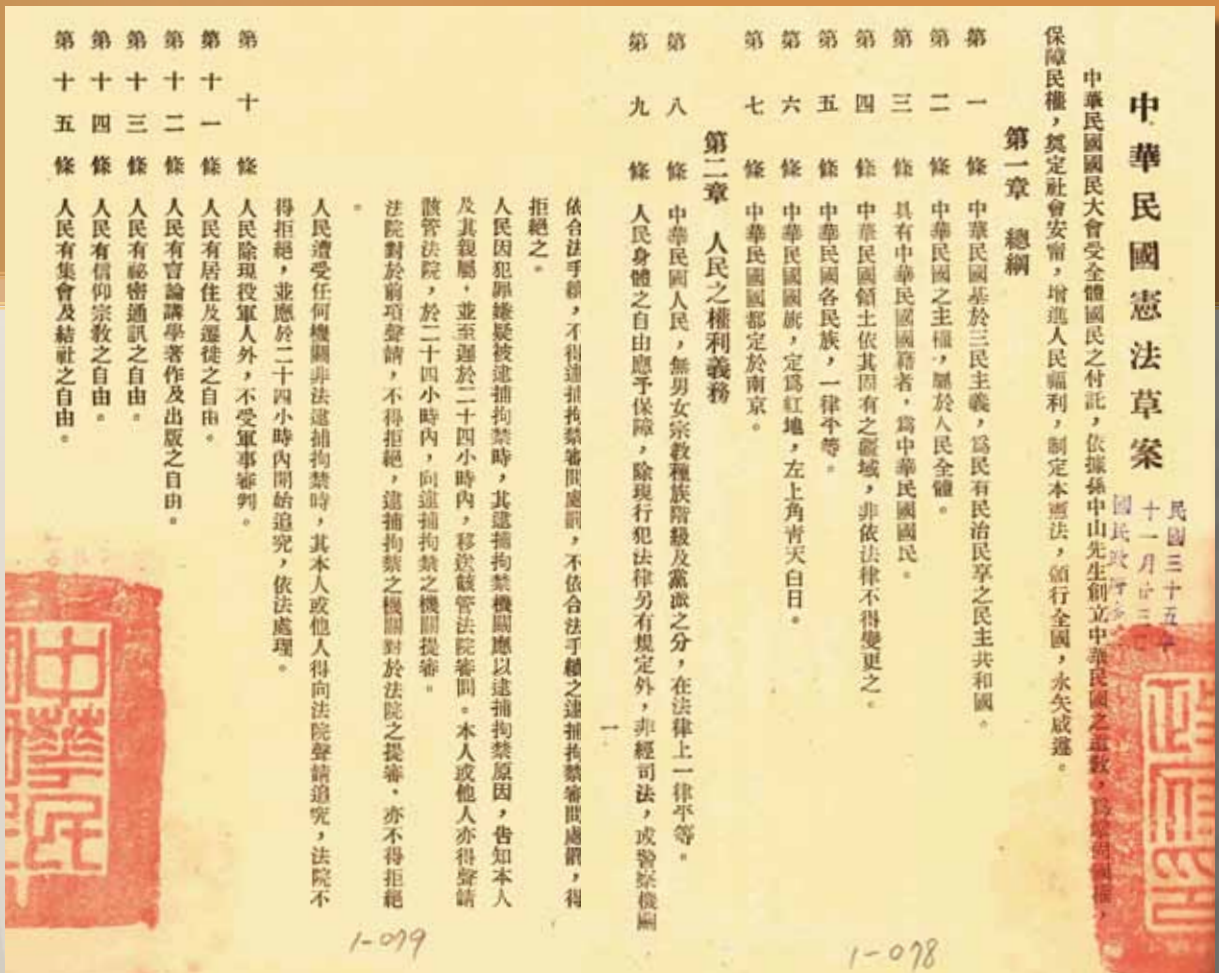 中華民國憲法草案
民國三十五年
十一月廿三日
國民政府
中華民國國民大會受全體國民之付託，依據孫中山先生創立中華民國之遺教，爲鞏固國權，
保障民權，奠定社會安甯，增進人民福利，制定本憲法，頒行全國，永矢咸遵。
第一章　總綱
第一條　中華民國基於三民主義，爲民有民治民享之民主共和國。
第二條　中華民國之主權，屬於人民全體。
第三條　具有中華民國國籍者，爲中華民國國民。
第四條　中華民國領土依其固有之疆域，非依法律不得變更之。
第五條　中華民國各民族，一律平等。
第六條　中華民國國旗，定爲紅地，左上角靑天白日。
第七條　中華民國國都定於南京。
第二章　人民之權利義務
第八條　中華民國人民，無男女宗教種族階級及黨派之分，在法律上一律平等。
第九條　人民身體之自由應予保障，除現行犯法律另有規定外，非經司法，或警察機關
一
依合法手續，不得逮捕拘禁審問處罰，不依合法手續之逮捕拘禁審問處罰，得
拒絕之。
人民因犯罪嫌疑被逮捕拘禁時，其逮捕拘禁機關應以逮捕拘禁原因，告知本人
及其親屬，並至遲於二十四小時內，移送該管法院審問。本人或他人亦得聲請
該管法院，於二十四小時內，向逮捕拘禁之機關提審。
法院對於前項聲請，不得拒絕，逮捕拘禁之機關對於法院之提審，亦不得拒絕
。
人民遭受任何機關非法逮捕拘禁時，其本人或他人得向法院聲請追究，法院不
得拒絕，並應於二十四小時內開始追究，依法處理。
第十條　人民除現役軍人外，不受軍事審判。
第十一條　人民有居住及遷徙之自由。
第十二條　人民有言論講學著作及出版之自由。
第十三條　人民有祕密通訊之自由。
第十四條　人民有信仰宗教之自由。
第十五條　人民有集會及結社之自由。
1-078
1-079
中華民